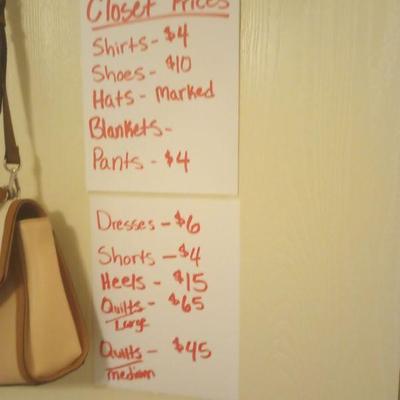 Closet Prices
Shirts - $4
Shoes - $10
Hats - Marked
Blankets -
Pants - $4
Dresses - $6
Shorts - $4
Heels - $15
Quilts - $65
Large
Quilts - $45
medium